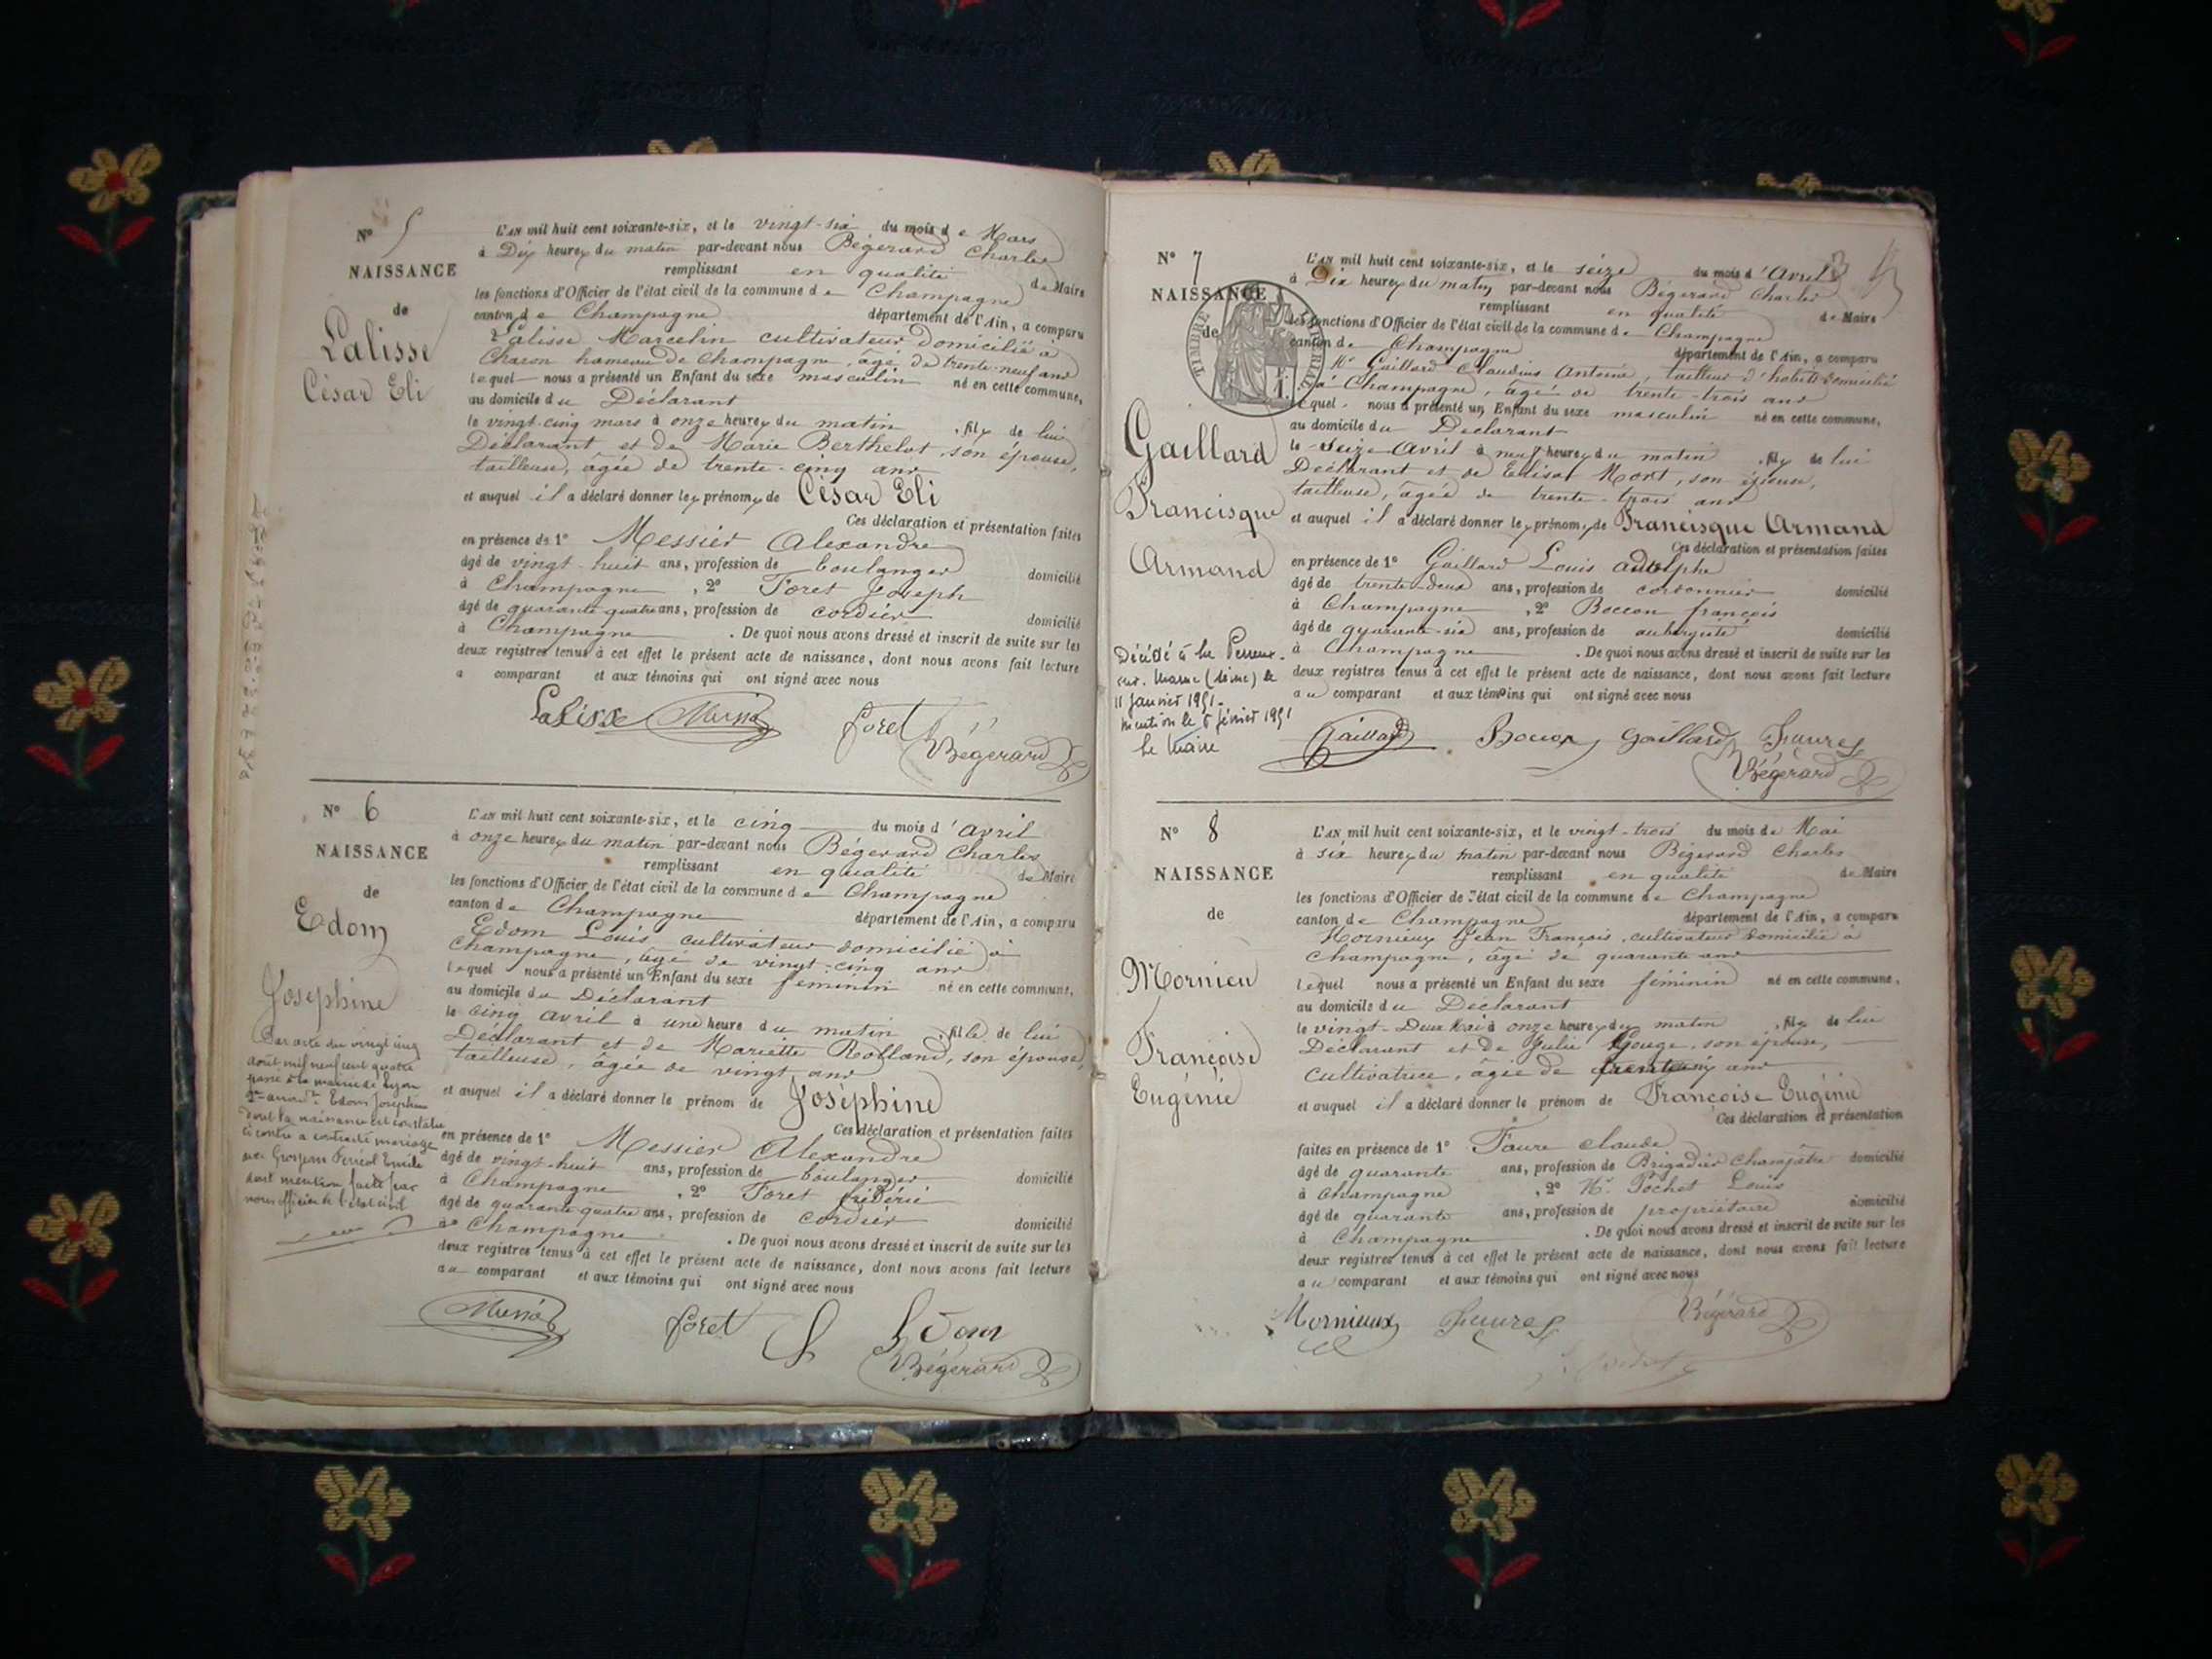 N° 5
NAISSANCE
de
Lalisse
César Eli
L'AN mil huit cent soixante-six, et le vingt-six du mois de Mars
à Dix heures du matin par-devant nous Bégerard Charles
remplissant en qualité de Maire
les fonctions d'Officier de l'état civil de la commune de Champagne
canton de Champagne département de l'Ain, a comparu
Lalisse Marcelin cultivateur domicilié à
Charon hameau de Champagne, âgé de trente-neuf ans
lequel nous a présenté un Enfant du sexe masculin né en cette commune,
au domicile du Déclarant
le vingt-cinq mars à onze heures du matin, fils de lui
Déclarant et de Marie Berthelot son épouse,
tailleuse, âgée de trente-cinq ans
et auquel il a déclaré donner les prénoms de César Eli
Ces déclaration et présentation faites
en présence de 1° Messier Alexandre
âgé de vingt-huit ans, profession de boulanger domicilié
à Champagne, 2° Foret Joseph
âgé de quarante quatre ans, profession de cordier domicilié
à Champagne. De quoi nous avons dressé et inscrit de suite sur les
deux registres tenus à cet effet le présent acte de naissance, dont nous avons fait lecture
a comparant et aux témoins qui ont signé avec nous
Lalisse Foret
Bégérard
N° 6
NAISSANCE
de
Edom
Josephine
Par acte du vingt cinq
août mil neuf cent quatre
passé à la mairie de Lyon
Edom Joséphine
dont la naissance est constatée
ci contre a contracté mariage
avec Emile
dont mention faite par
nous officier de l'état civil
L'AN mil huit cent soixante-six, et le cinq du mois d'avril
à onze heures du matin par-devant nous Bégerard Charles
remplissant en qualité de Maire
les fonctions d'Officier de l'état civil de la commune de Champagne
canton de Champagne département de l'Ain, a comparu
Edom Louis cultivateur domicilié à
Champagne, âgé de vingt-cinq ans
lequel nous a présenté un Enfant du sexe féminin né en cette commune,
au domicile du Déclarant
le cinq avril à une heure du matin, fille de lui
Déclarant et de Mariette Rolland, son épouse,
tailleuse, âgée de vingt ans
et auquel il a déclaré donner le prénom de Joséphine
Ces déclaration et présentation faites
en présence de 1° Messier Alexandre
âgé de vingt-huit ans, profession de boulanger domicilié
à Champagne, 2° Foret
âgé de quarante quatre ans, profession de cordier domicilié
à Champagne. De quoi nous avons dressé et inscrit de suite sur les
deux registres tenus à cet effet le présent acte de naissance, dont nous avons fait lecture
au comparant et aux témoins qui ont signé avec nous
foret Edom
Bégérard
N° 7
NAISSANCE
de
TIMBRE IMPÉRIAL
Gaillard
Francisque
Armand
Décédé à Le Perreux-
sur-Marne (Seine) le
11 Janvier 1951.
Mention le 5 février 1951
Le Maire
L'AN mil huit cent soixante-six, et le seize du mois d'Avril
à Dix heures du matin par-devant nous Bégerard Charles
remplissant en qualité de Maire
les fonctions d'Officier de l'état civil de la commune de Champagne
canton de Champagne département de l'Ain, a comparu
Mr Gaillard Claudius Antoine, tailleur d'habits domicilié
à Champagne, âgé de trente-trois ans
lequel nous a présenté un Enfant du sexe masculin né en cette commune,
au domicile du Déclarant
le seize avril à neuf heures du matin, fils de lui
Déclarant et de Mort, son épouse,
tailleuse, âgée de trente-trois ans
et auquel il a déclaré donner les prénoms de Francisque Armand
Ces déclaration et présentation faites
en présence de 1° Gaillard Louis adolphe
âgé de trente-deux ans, profession de cordonnier domicilié
à Champagne, 2° Boccon françois
âgé de quarante-six ans, profession de aubergiste domicilié
à Champagne. De quoi nous avons dressé et inscrit de suite sur les
deux registres tenus à cet effet le présent acte de naissance, dont nous avons fait lecture
au comparant et aux témoins qui ont signé avec nous
Gaillard Boccon Gaillard
Bégérard
N° 8
NAISSANCE
de
Mornieu
Françoise
Eugénie
L'AN mil huit cent soixante-six, et le vingt-trois du mois de Mai
à six heures du matin par-devant nous Bégerard Charles
remplissant en qualité de Maire
les fonctions d'Officier de l'état civil de la commune de Champagne
canton de Champagne département de l'Ain, a comparu
Mornieux Jean François, cultivateur domicilié à
Champagne, âgé de quarante ans
lequel nous a présenté un Enfant du sexe féminin né en cette commune,
au domicile du Déclarant
le vingt-Deux Mai à onze heures du matin, fils de lui
Déclarant et de Julie Gouge, son épouse,
cultivatrice, âgée de ans
et auquel il a déclaré donner le prénom de Françoise Eugénie
Ces déclaration et présentation
faites en présence de 1° Faure Claude
âgé de quarante ans, profession de Brigadier Champêtre domicilié
à Champagne, 2° Mr Pochet Louis
âgé de quarante ans, profession de propriétaire domicilié
à Champagne. De quoi nous avons dressé et inscrit de suite sur les
deux registres tenus à cet effet le présent acte de naissance, dont nous avons fait lecture
au comparant et aux témoins qui ont signé avec nous
Mornieux Bégérard